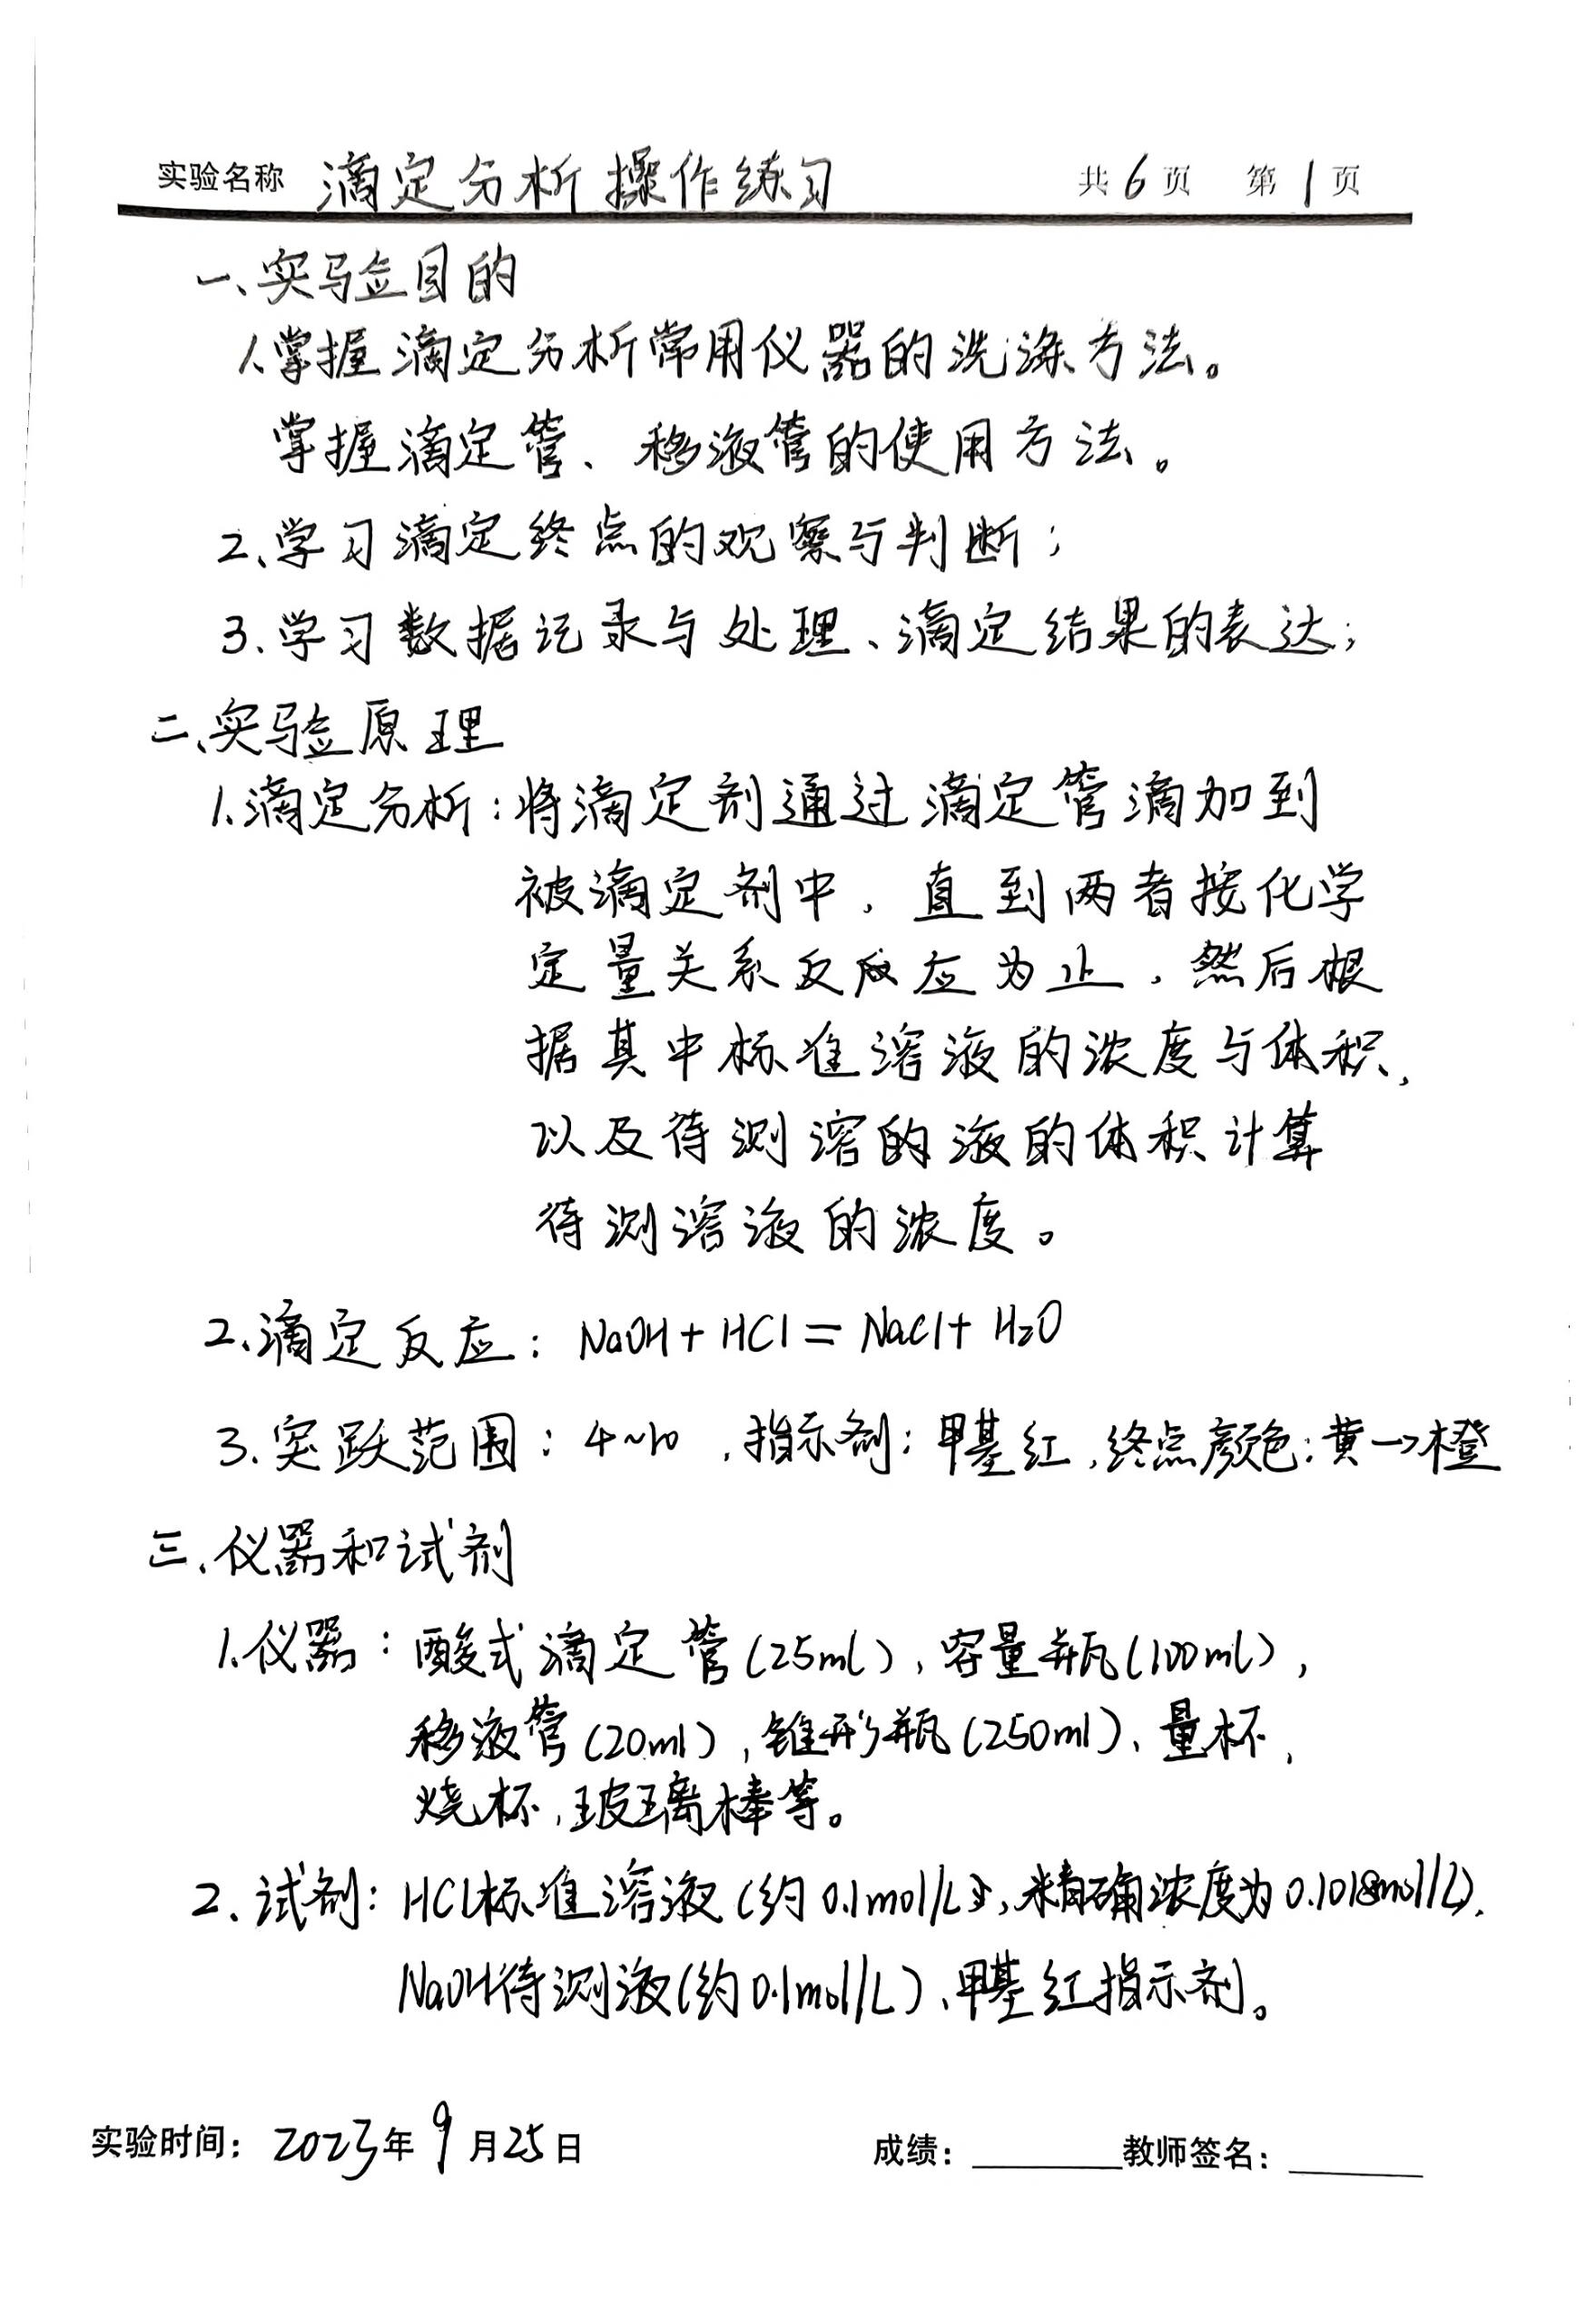 实验名称 滴定分析操作练习 共6页 第1页
一、实验目的
1.掌握滴定分析常用仪器的洗涤方法。
掌握滴定管、移液管的使用方法。
2、学习滴定终点的观察与判断；
3.学习数据记录与处理、滴定结果的表达；
二、实验原理
1.滴定分析：将滴定剂通过滴定管滴加到
被滴定剂中，直到两者按化学
定量关系反反应为止，然后根
据其中标准溶液的浓度与体积，
以及待测溶的液的体积计算
待测溶液的浓度。
2.滴定反应：NaOH+HCl=NaCl+H₂O
3.突跃范围：4~10，指示剂：甲基红，终点颜色：黄→橙
三、仪器和试剂
1.仪器：酸式滴定管(25ml)，容量瓶(100ml)，
移液管(20ml)，锥形瓶(250ml)、量杯，
烧杯，玻璃棒等。
2、试剂：HCl标准溶液(约0.1mol/L，精确浓度为0.1018mol/L)，
NaOH待测液(约0.1mol/L)、甲基红指示剂。
实验时间：2023年9月25日 成绩： 教师签名：